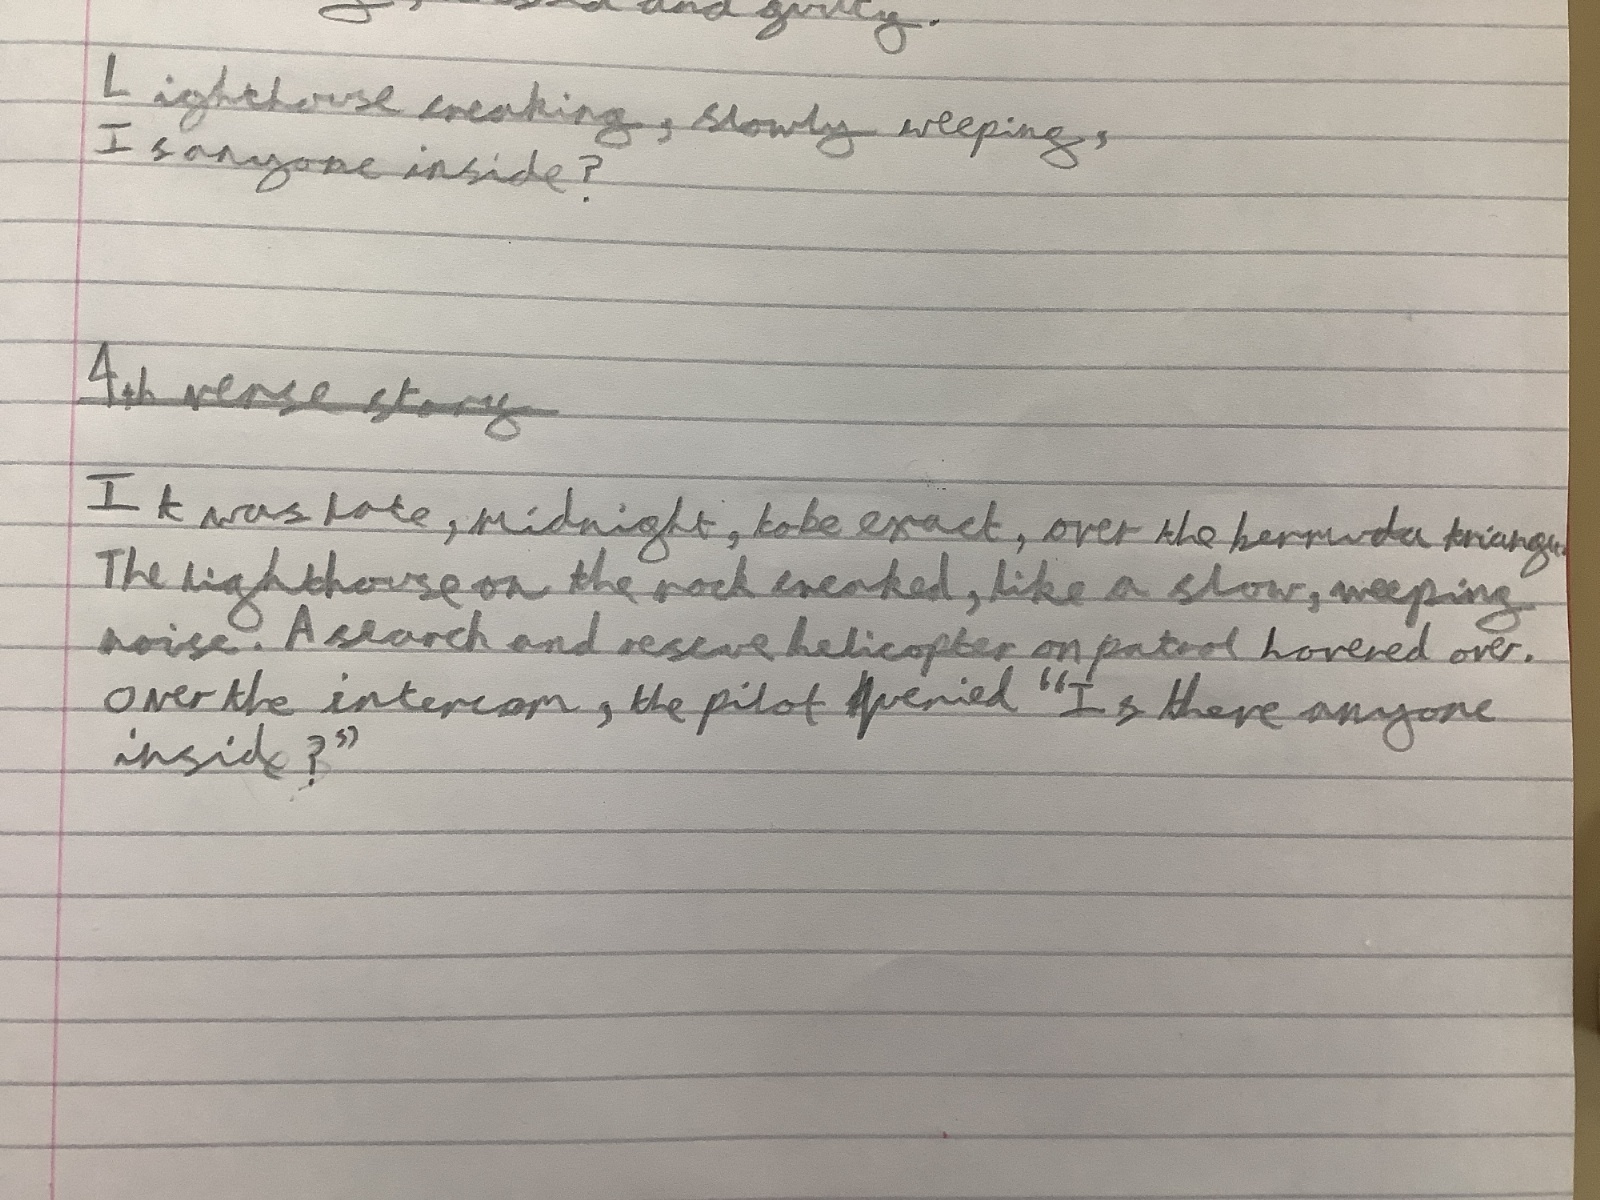 and guilty.
Lighthouse creaking, slowly weeping,
Is anyone inside?
4th verse story
It was late, midnight, to be exact, over the bermuda triangle
The lighthouse on the rock creaked, like a slow, weeping
noise. A search and rescue helicopter on patrol hovered over.
over the intercom, the pilot queried “Is there anyone
inside?”